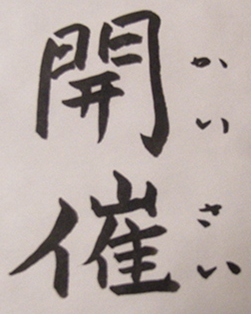 開催
かいさい